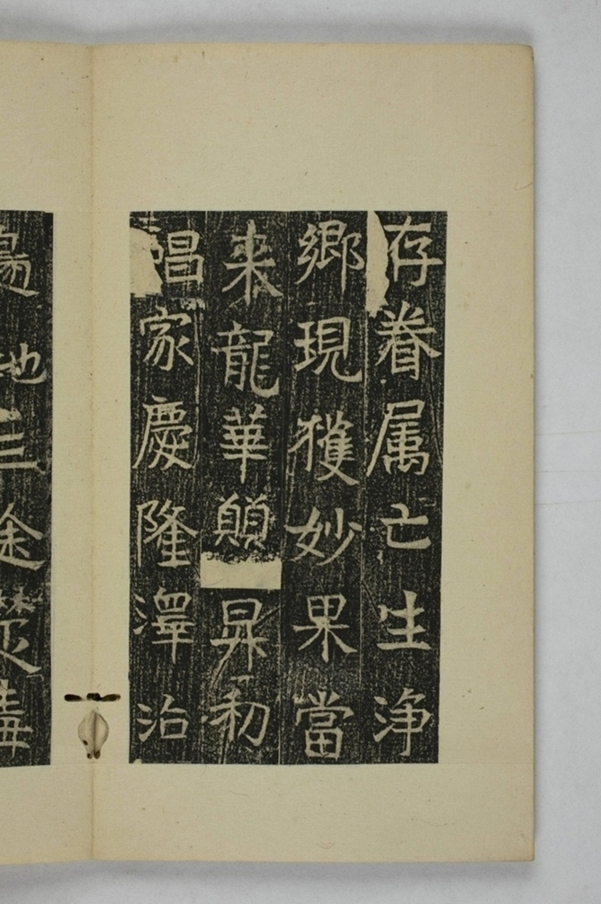 存眷属亡生浄
鄉現獲妙果當
来龍華願昇初
唱家慶隆澤治
地三途楚